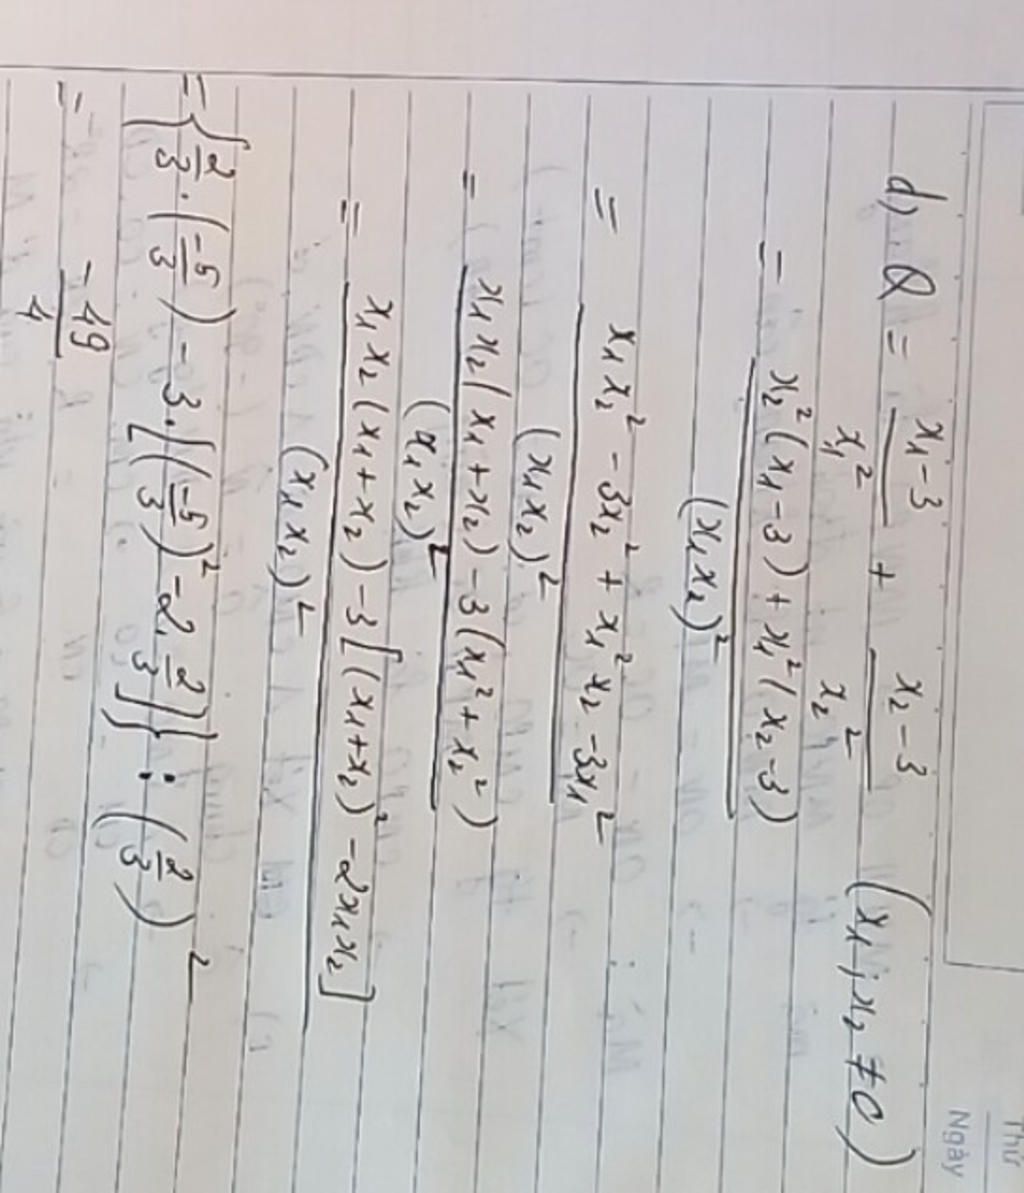 Thứ
Ngày
d, Q = (x₁ - 3)/x₁² + (x₂ - 3)/x₂² (x₁; x₂ ≠ 0)
= (x₂²(x₁ - 3) + x₁²(x₂ - 3))/(x₁x₂)²
= (x₁x₂² - 3x₂² + x₁²x₂ - 3x₁²)/(x₁x₂)²
= (x₁x₂(x₁ + x₂) - 3(x₁² + x₂²))/(x₁x₂)²
= (x₁x₂(x₁ + x₂) - 3[(x₁ + x₂)² - 2x₁x₂])/(x₁x₂)²
= {2/3 . (-5/3) - 3.[(-5/3)² - 2. 2/3]} : (2/3)²
= -49/4